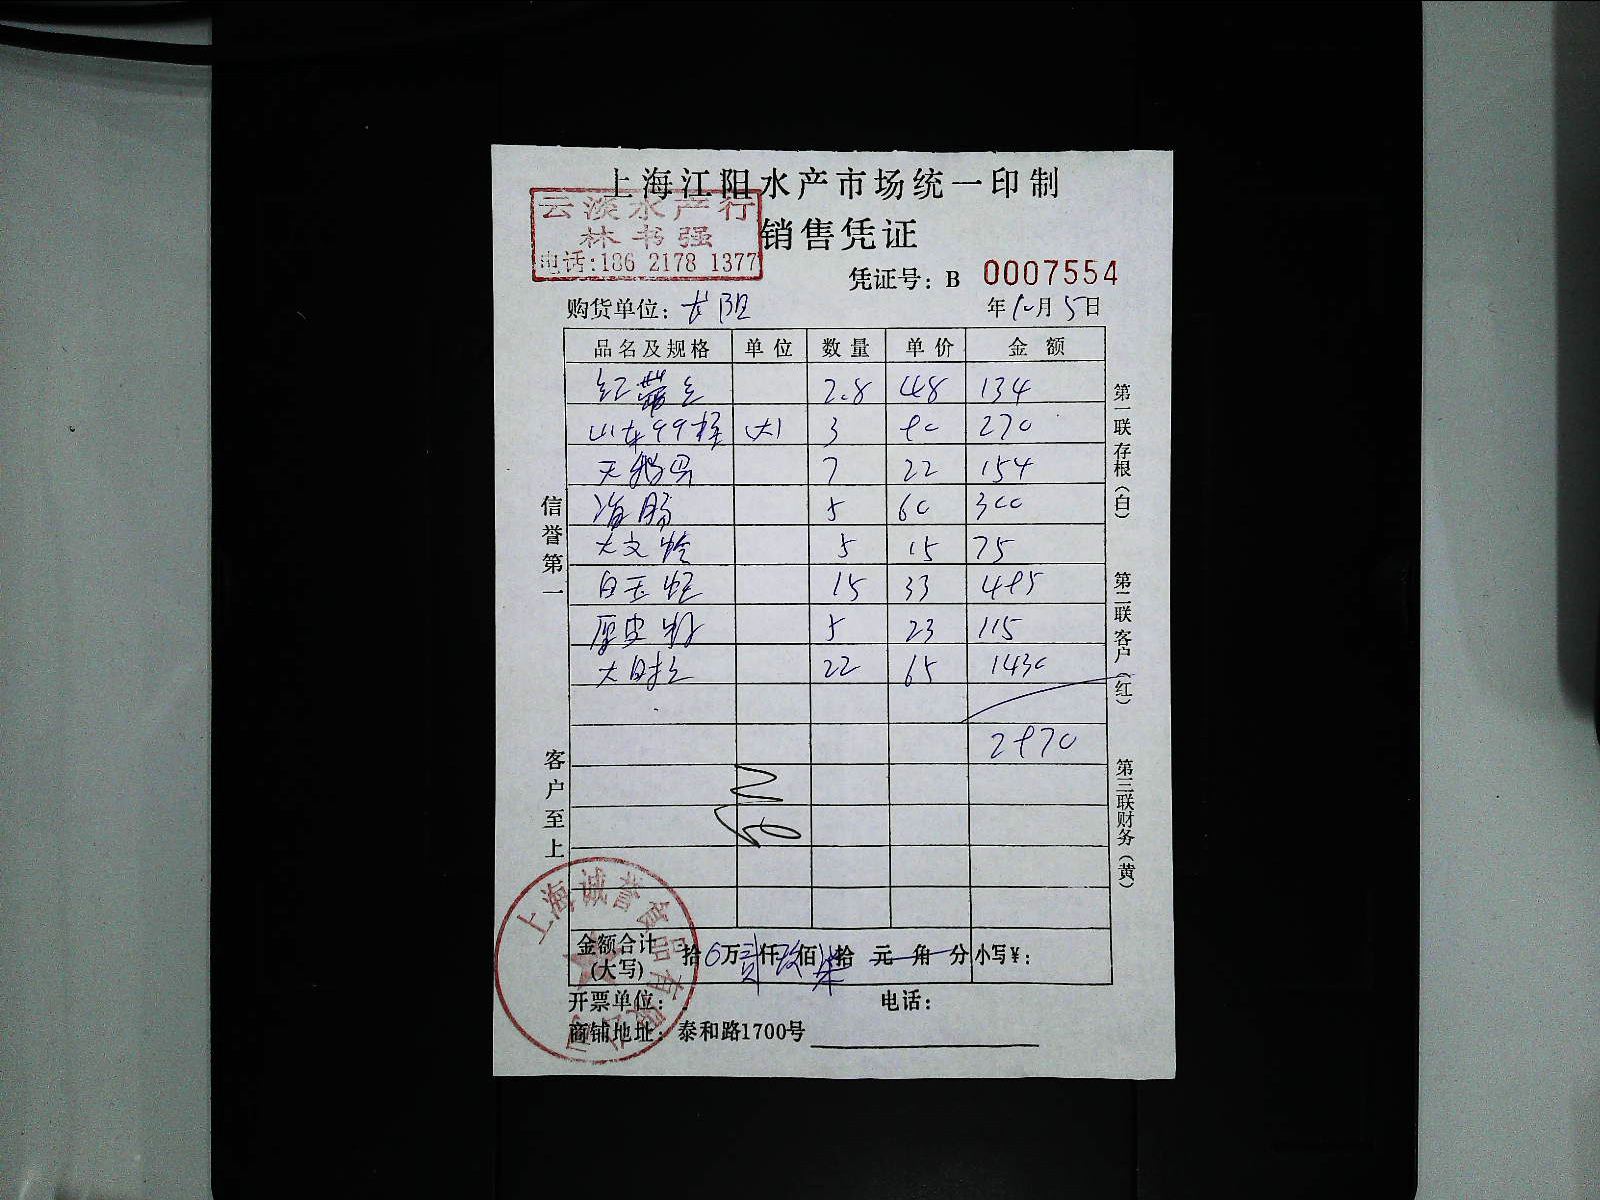 上海江阳水产市场统一印制
云淡水产行
林书强
电话:186 2178 1377
销售凭证
凭证号: B 0007554
购货单位: 长阳
年10月5日
品名及规格 单位 数量 单价 金额
2.8 48 134
山东99 (大) 3 90 270
天鹅 7 22 154
海肠 5 60 300
大文蛤 5 15 75
白玉蛏 15 33 495
5 23 115
22 65 1430
2970
信誉第一
客户至上
第一联存根(白)
第二联客户(红)
第三联财务(黄)
金额合计(大写) 拾0万贰仟玖佰柒拾元角分 小写¥:
开票单位: 电话:
商铺地址: 泰和路1700号
上海诚誉食品有限公司